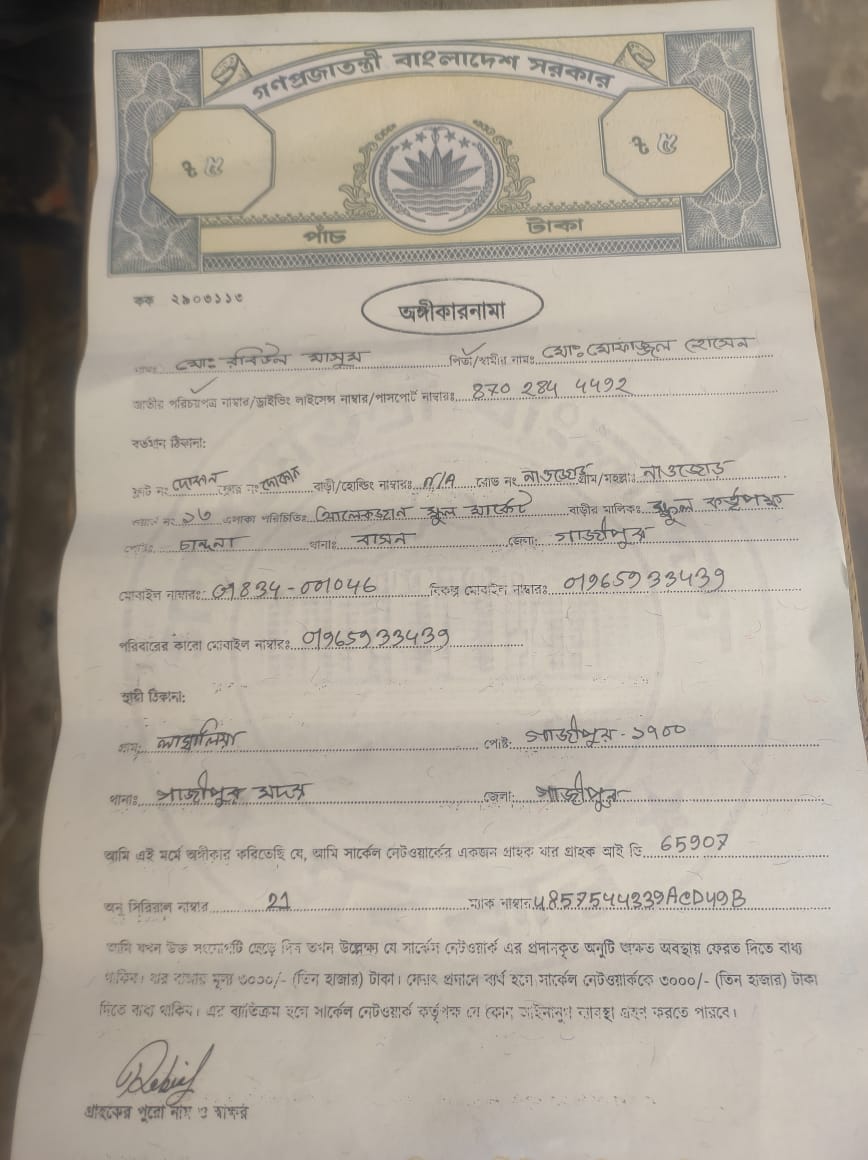 গণপ্রজাতন্ত্রী বাংলাদেশ সরকার
৳ ৫ ৳ ৫
পাঁচ টাকা
কক ২৯০৩১১৩
অঙ্গীকারনামা
নাম: মোঃ রবিউল মাসুম পিতা/স্বামীর নামঃ মোঃ মোফাজ্জল হোসেন
জাতীয় পরিচয়পত্র নাম্বার/ড্রাইভিং লাইসেন্স নাম্বার/পাসপোর্ট নাম্বারঃ 870 284 4492
বর্তমান ঠিকানা:
ফ্লাট নং দোকান ফ্লোর নং দোকান বাড়ী/হোল্ডিং নাম্বারঃ N/A রোড নং নাওজোড় গ্রাম/মহল্লাঃ নাওজোড়
ওয়ার্ড নং ১৩ এলাকা পরিচিতিঃ স্কুল মার্কেট বাড়ীর মালিকঃ স্কুল কর্তৃপক্ষ
পোষ্টঃ চান্দনা থানাঃ বাসন জেলাঃ গাজীপুর
মোবাইল নাম্বারঃ 01834-001046 বিকল্প মোবাইল নাম্বারঃ 01965933439
পরিবারের কারো মোবাইল নাম্বারঃ 01965933439
স্থায়ী ঠিকানা:
গ্রাম: লাঘালিয়া পোষ্ট: গাজীপুর - ১৭০০
থানাঃ গাজীপুর সদর জেলা: গাজীপুর
আমি এই মর্মে অঙ্গীকার করিতেছি যে, আমি সার্কেল নেটওয়ার্কের একজন গ্রাহক যার গ্রাহক আই ডি 65907
অনু সিরিয়াল নাম্বার 21 ম্যাক নাম্বার 4857544339ACD49B
আমি যখন উক্ত সংযোগটি ছেড়ে দিব তখন উল্লেক্ষ্য যে সার্কেল নেটওয়ার্ক এর প্রদানকৃত অনুটি অক্ষত অবস্থায় ফেরত দিতে বাধ্য
থাকিব। যার বাজার মূল্য ৩০০০/- (তিন হাজার) টাকা। ফেরৎ প্রদানে ব্যর্থ হলে সার্কেল নেটওয়ার্ককে ৩০০০/- (তিন হাজার) টাকা
দিতে বাধ্য থাকিব। এর ব্যতিক্রম হলে সার্কেল নেটওয়ার্ক কর্তৃপক্ষ যে কোন আইনানুগ ব্যবস্থা গ্রহন করতে পারবে।
গ্রাহকের পুরো নাম ও স্বাক্ষর